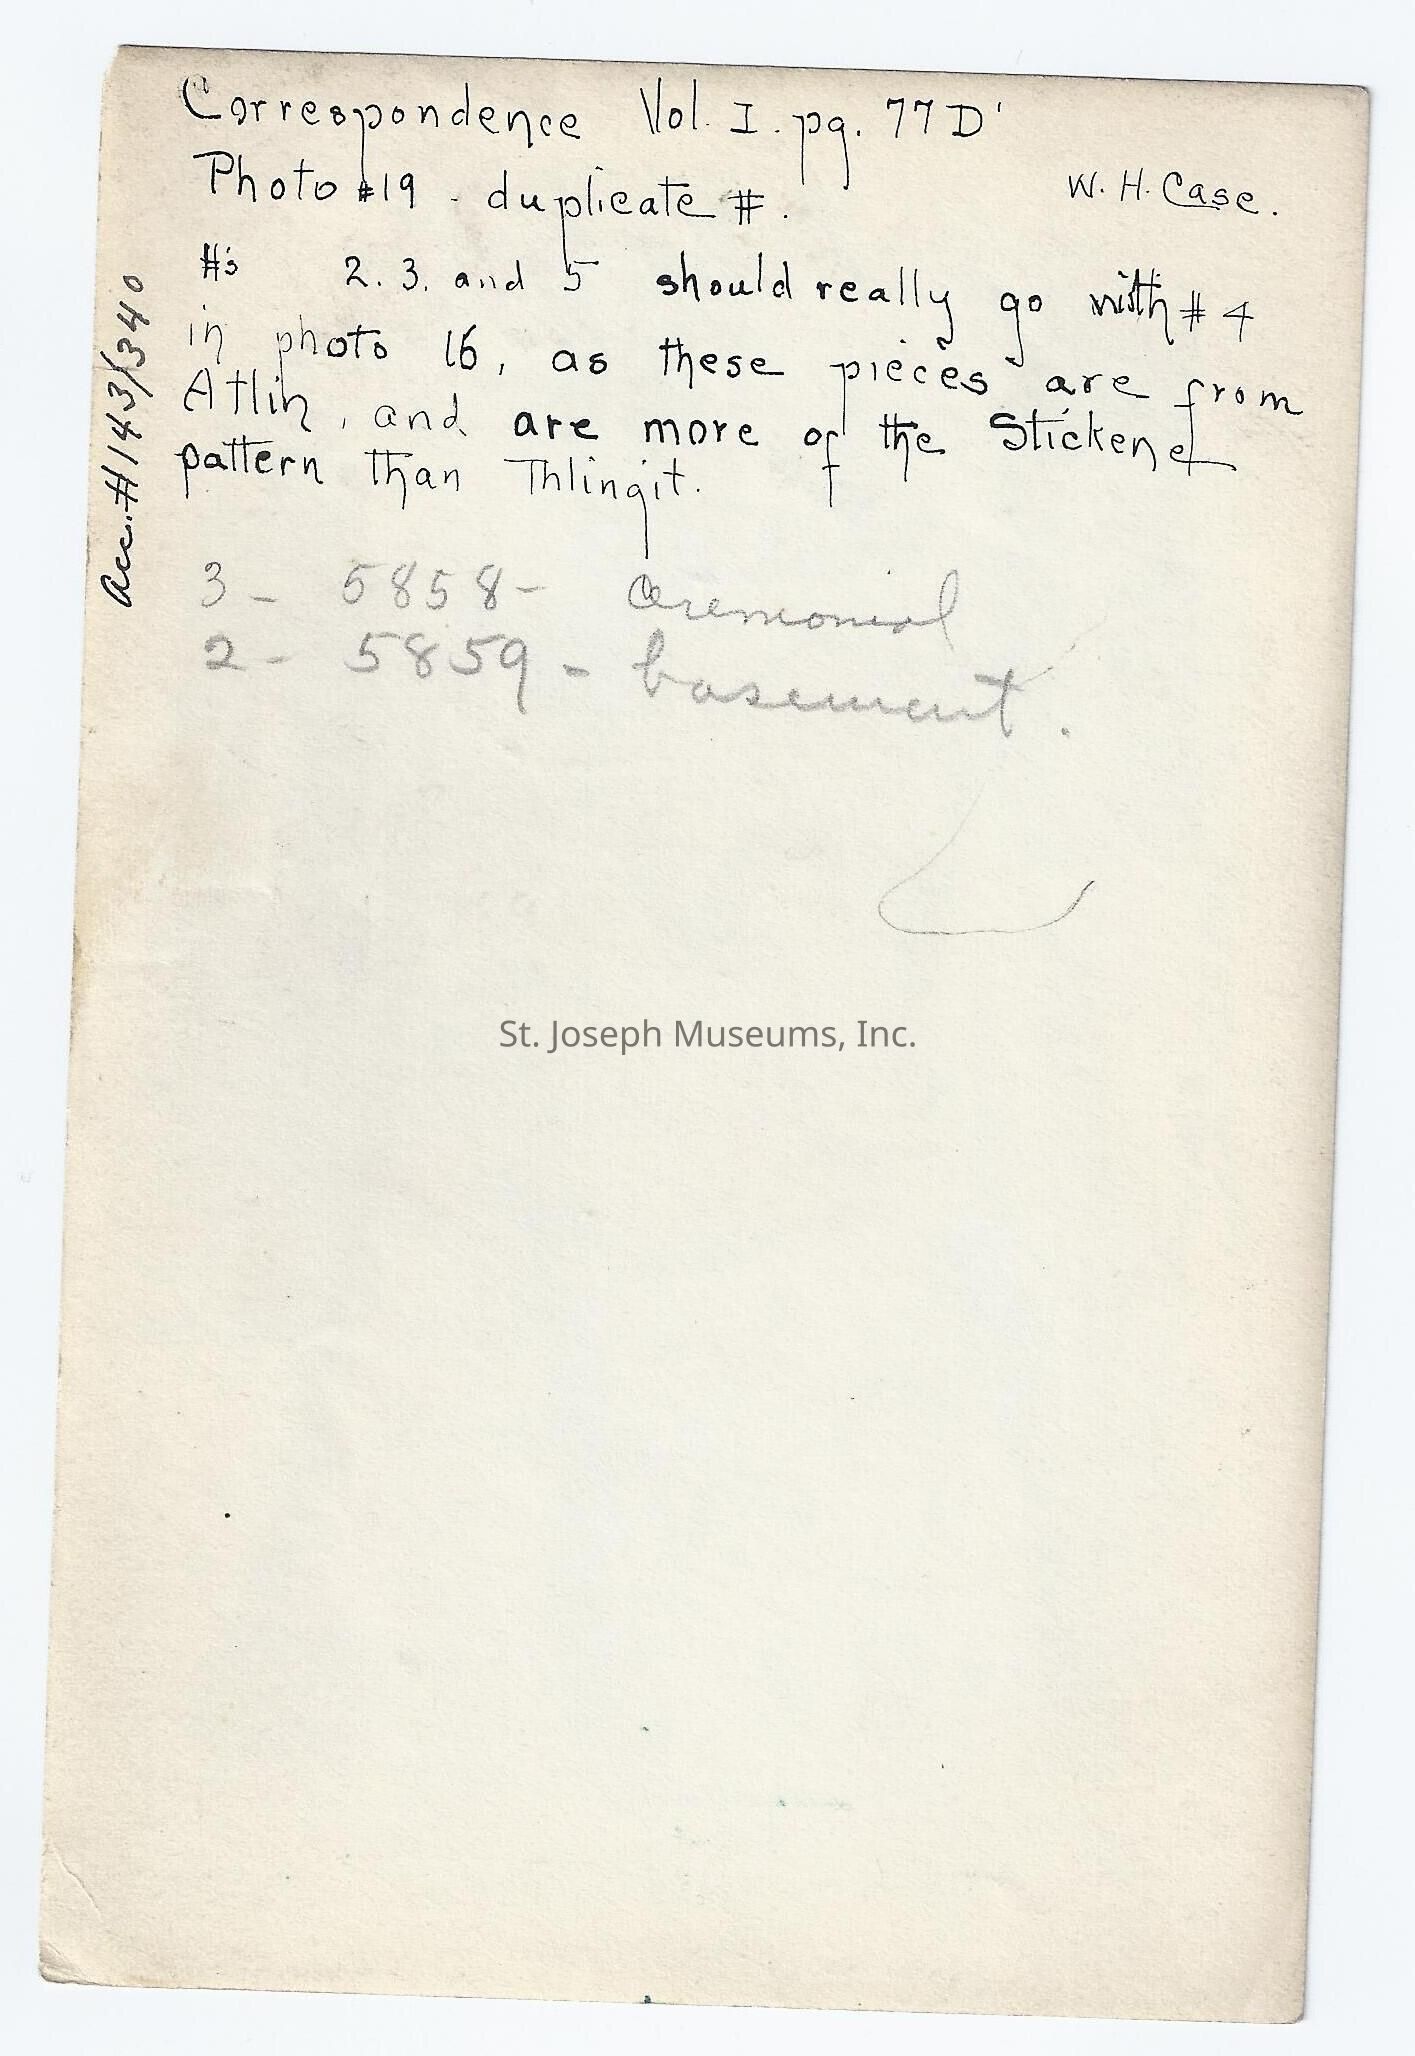 Correspondence Vol. I. pg. 77D'
Photo #19 - duplicate #. W. H. Case.
#'s 2. 3. and 5 should really go with #4
in photo 16, as these pieces are from
Atlin, and are more of the Stickene
pattern than Thlingit.
Acc.#1143/340
3 - 5858 - Ceremonial
2 - 5859 - basement.
St. Joseph Museums, Inc.